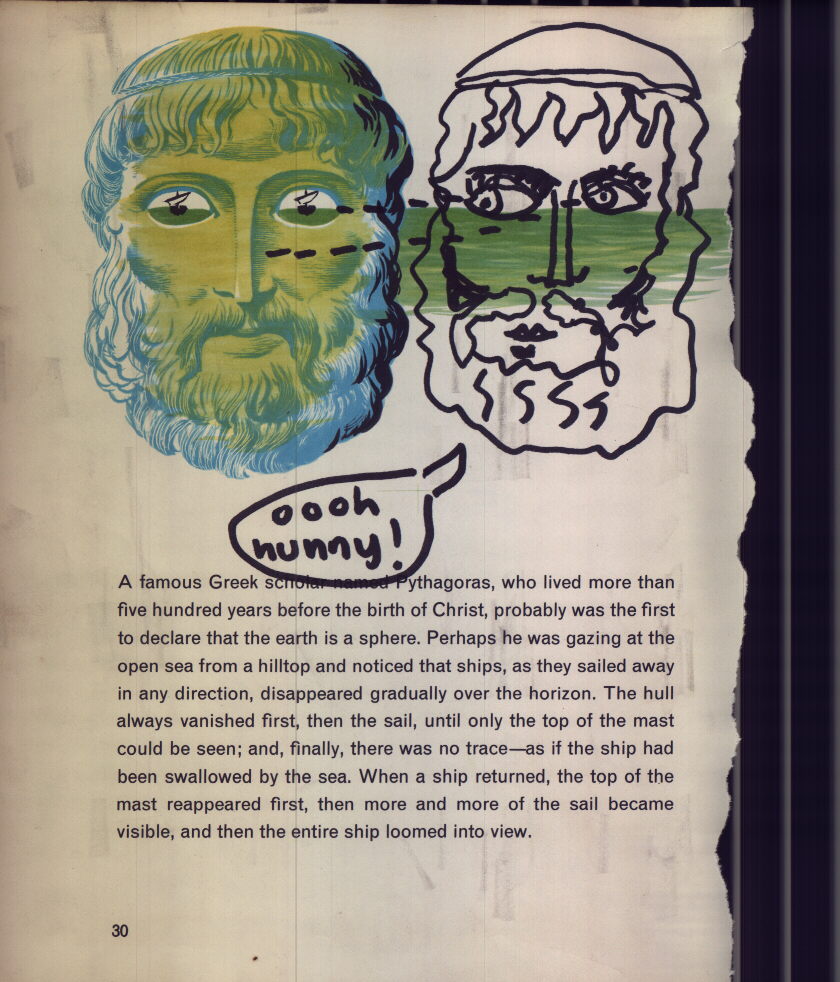 oooh
hunny!
A famous Greek scholar named Pythagoras, who lived more than
five hundred years before the birth of Christ, probably was the first
to declare that the earth is a sphere. Perhaps he was gazing at the
open sea from a hilltop and noticed that ships, as they sailed away
in any direction, disappeared gradually over the horizon. The hull
always vanished first, then the sail, until only the top of the mast
could be seen; and, finally, there was no trace—as if the ship had
been swallowed by the sea. When a ship returned, the top of the
mast reappeared first, then more and more of the sail became
visible, and then the entire ship loomed into view.
30